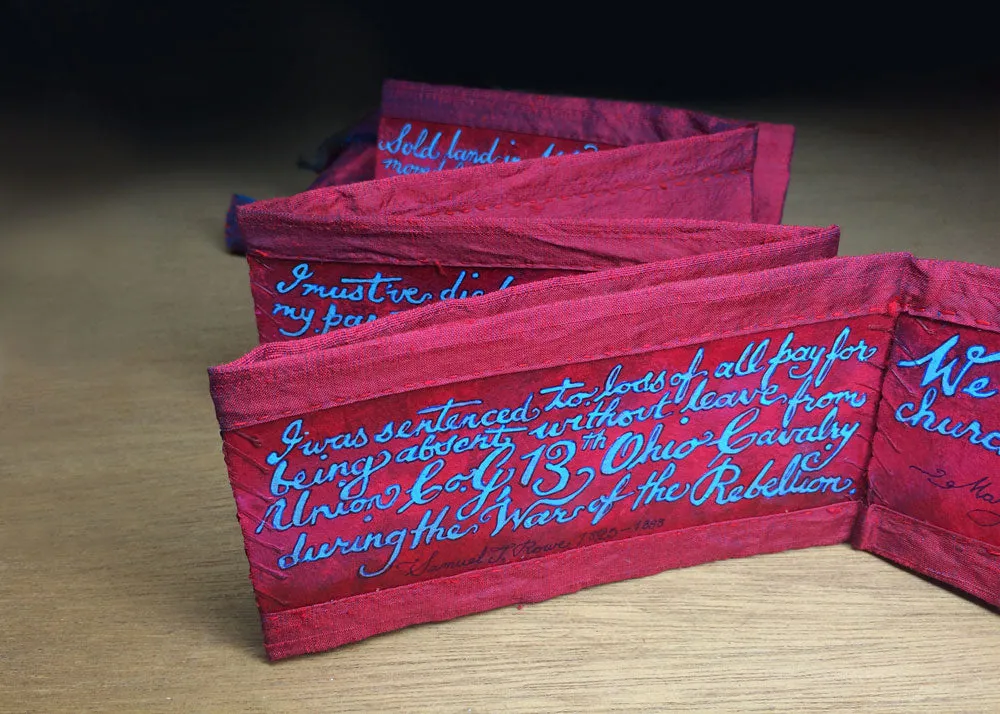 Sold land in
I must've
my
I was sentenced to loss of all pay for
being absent without leave from
Union Co. G 13th Ohio Cavalry
during the War of the Rebellion.
Samuel
We